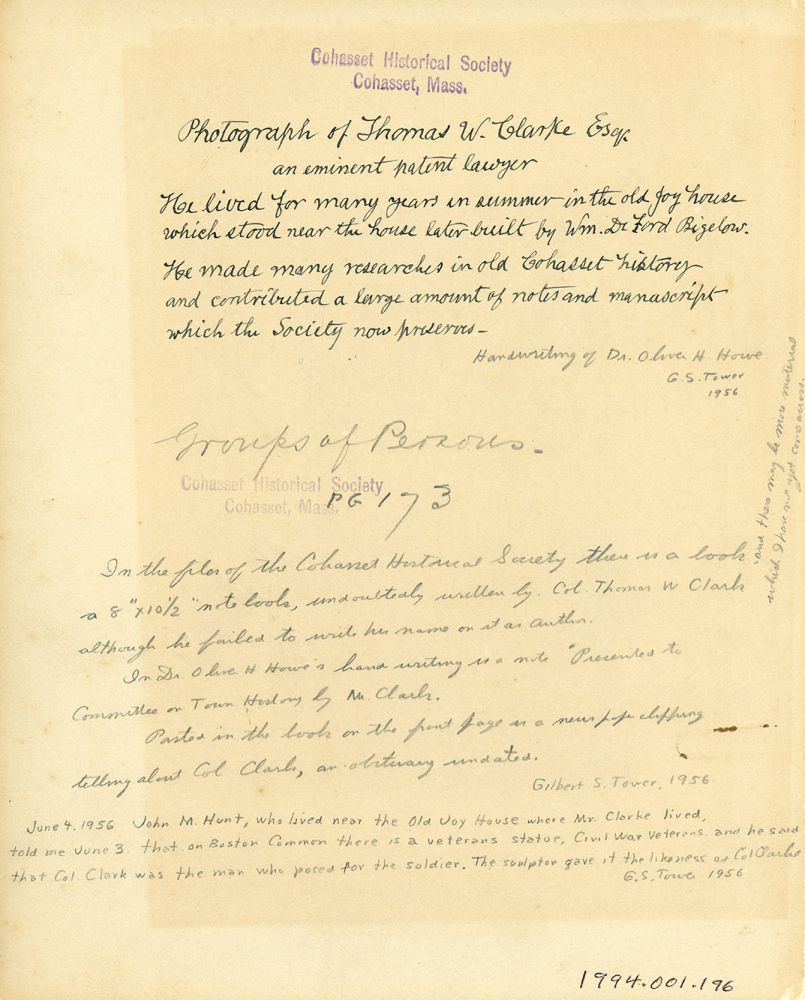 Cohasset Historical Society
Cohasset, Mass.
Photograph of Thomas W. Clarke Esq.
an eminent patent lawyer
He lived for many years in summer in the old Joy house
which stood near the house later built by Wm. De Ford Bigelow.
He made many researches in old Cohasset history
and contributed a large amount of notes and manuscript
which the Society now preserves -
Handwriting of Dr. Oliver H Howe
G.S. Tower
1956
and there may be more material
which I have not yet come across.
Groups of Persons.
Cohasset Historical Society
Cohasset, Mass.
PG 173
In the files of the Cohasset Historical Society there is a book
a 8" x 10½" note book, undoubtedly written by Col. Thomas W Clark
although he failed to write his name on it as author.
In Dr. Oliver H Howe's hand writing is a note "Presented to
Committee on Town History by Mr. Clark.
Pasted in the book on the front page is a news pape clipping
telling about Col Clark, an obituary undated.
Gilbert S. Tower, 1956
June 4, 1956 John M. Hunt, who lived near the Old Joy House where Mr. Clarke lived,
told me June 3. that on Boston Common there is a veterans statue, Civil War Veterans. and he said
that Col. Clark was the man who posed for the soldier. The sculptor gave it the likeness of Col Clarke
G.S. Tower 1956
1994.001.196